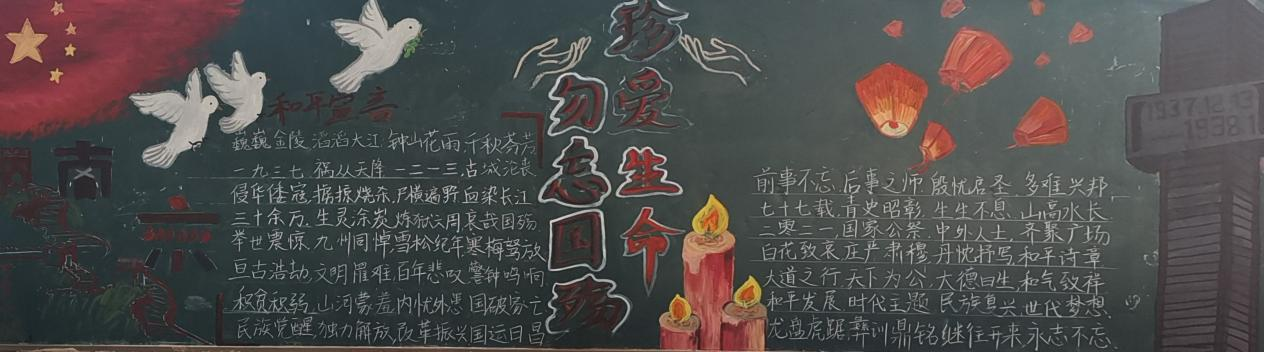 珍爱生命
勿忘国殇
南
京
和平宣言
巍巍金陵,滔滔大江,钟山花雨,千秋芬芳
一九三七,祸从天降,一二一三,古城沦丧
侵华倭寇,掳掠烧杀,尸横遍野,血染长江
三十余万,生灵涂炭,炼狱六周,哀哉国殇
举世震惊,九州同悼,雪松纪年,寒梅努放
亘古浩劫,文明罹难,百年悲叹,警钟鸣响
积贫积弱,山河蒙羞,内忧外患,国破家亡
民族觉醒,独力解放,改革振兴,国运日昌
前事不忘,后事之师,殷忧启圣,多难兴邦,
七十七载,青史昭彰,生生不息,山高水长
二零二一,国家公祭,中外人士,齐聚广场
白花致哀,庄严肃穆,丹忱抒写,和平诗章
大道之行,天下为公,大德曰生,和气致祥
和平发展,时代主题,民族复兴,世代梦想.
龙盘虎踞,彝训鼎铭,继往开来,永志不忘.
1937.12.13
1938.1